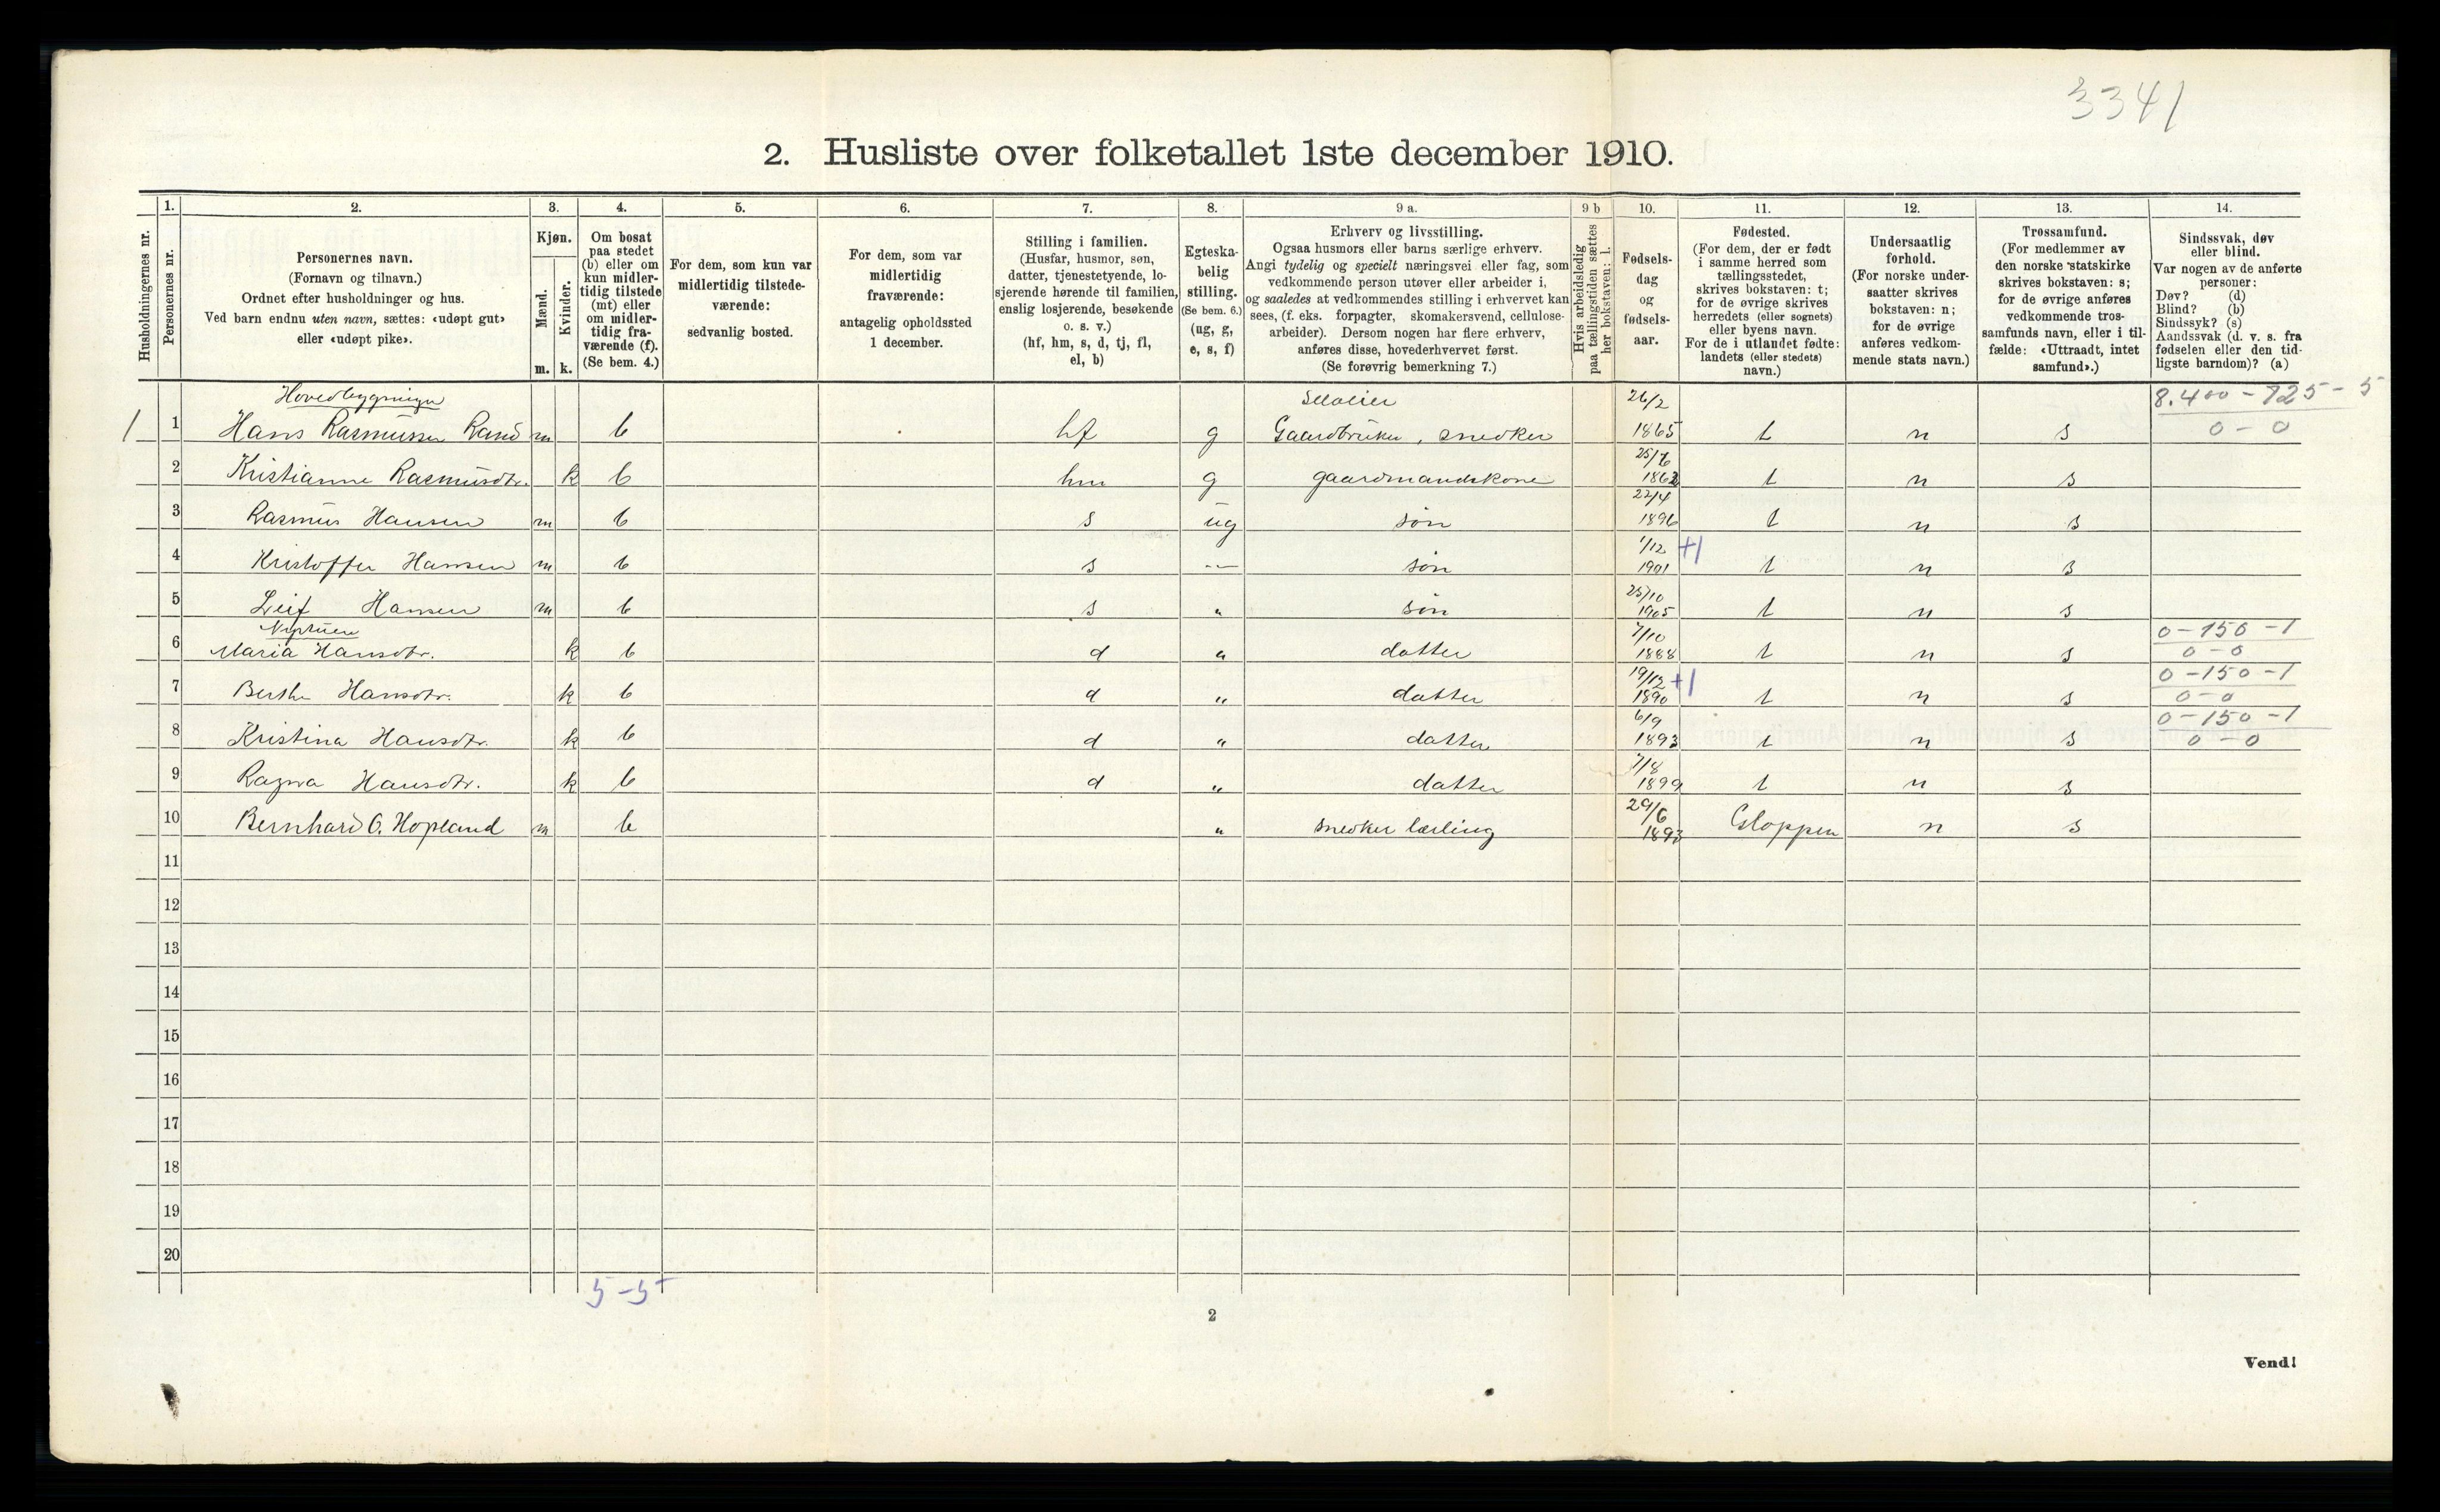 3341
2. Husliste over folketallet 1ste december 1910.
Husholdningernes nr.
1. Personernes nr.
2. Personernes navn.
(Fornavn og tilnavn.)
Ordnet efter husholdninger og hus.
Ved barn endnu uten navn, sættes: «udøpt gut»
eller «udøpt pike».
3. Kjøn.
Mænd. Kvinder.
m. k.
4. Om bosat
paa stedet
(b) eller om
kun midler-
tidig tilstede
(mt) eller
om midler-
tidig fra-
værende (f).
(Se bem. 4.)
5. For dem, som kun var
midlertidig tilstede-
værende:
sedvanlig bosted.
6. For dem, som var
midlertidig
fraværende:
antagelig opholdssted
1 december.
7. Stilling i familien.
(Husfar, husmor, søn,
datter, tjenestetyende, lo-
sjerende hørende til familien,
enslig losjerende, besøkende
o. s. v.)
(hf, hm, s, d, tj, fl,
el, b)
8. Egteska-
belig
stilling.
(Se bem. 6.)
(ug, g,
e, s, f)
9 a. Erhverv og livsstilling.
Ogsaa husmors eller barns særlige erhverv.
Angi tydelig og specielt næringsvei eller fag, som
vedkommende person utøver eller arbeider i,
og saaledes at vedkommendes stilling i erhvervet kan
sees, (f. eks. forpagter, skomakersvend, cellulose-
arbeider). Dersom nogen har flere erhverv,
anføres disse, hovederhvervet først.
(Se forøvrig bemerkning 7.)
9 b Hvis arbeidsledig
paa tællingstiden sættes
her bokstaven: l.
10. Fødsels-
dag
og
fødsels-
aar.
11. Fødested.
(For dem, der er født
i samme herred som
tællingsstedet,
skrives bokstaven: t;
for de øvrige skrives
herredets (eller sognets)
eller byens navn.
For de i utlandet fødte:
landets (eller stedets)
navn.)
12. Undersaatlig
forhold.
(For norske under-
saatter skrives
bokstaven: n;
for de øvrige
anføres vedkom-
mende stats navn.)
13. Trossamfund.
(For medlemmer av
den norske statskirke
skrives bokstaven: s;
for de øvrige anføres
vedkommende tros-
samfunds navn, eller i til-
fælde: «Uttraadt, intet
samfund».)
14. Sindssvak, døv
eller blind.
Var nogen av de anførte
personer:
Døv? (d)
Blind? (b)
Sindssyk? (s)
Aandssvak (d. v. s. fra
fødselen eller den tid-
ligste barndom)? (a)
Hovedbygningen 26/2 8.400 - 725 - 5
1 1 Hans Rasmussen Rand m b hf g Gaardbruker, snedker 1865 t n s 0 - 0
2 Kristianne Rasmusdtr. k b hm g gaardmandskone 25/6 1862 t n s
3 Rasmus Hansen m b s ug søn 22/4 1896 t n s
4 Kristoffer Hansen m b s -"- søn 1/12 1901 +1 t n s
5 Leif Hansen m b s " søn 25/10 1905 t n s
6 Maria Hansdtr. k b d " datter 7/10 1888 t n s 0 - 150 - 1 0 - 0
7 Berthe Hansdtr. k b d " datter 19/12 1890 +1 t n s 0 - 150 - 1 0 - 0
8 Kristina Hansdtr. k b d " datter 6/9 1893 t n s 0 - 150 - 1 0 - 0
9 Ragna Hansdtr. k b d " datter 7/8 1899 t n s
10 Bernhard O. Hopland m b " snedker lærling 29/6 1893 Gloppen n s
11
12
13
14
15
16
17
18
19
20
5 - 5
2
Vend!